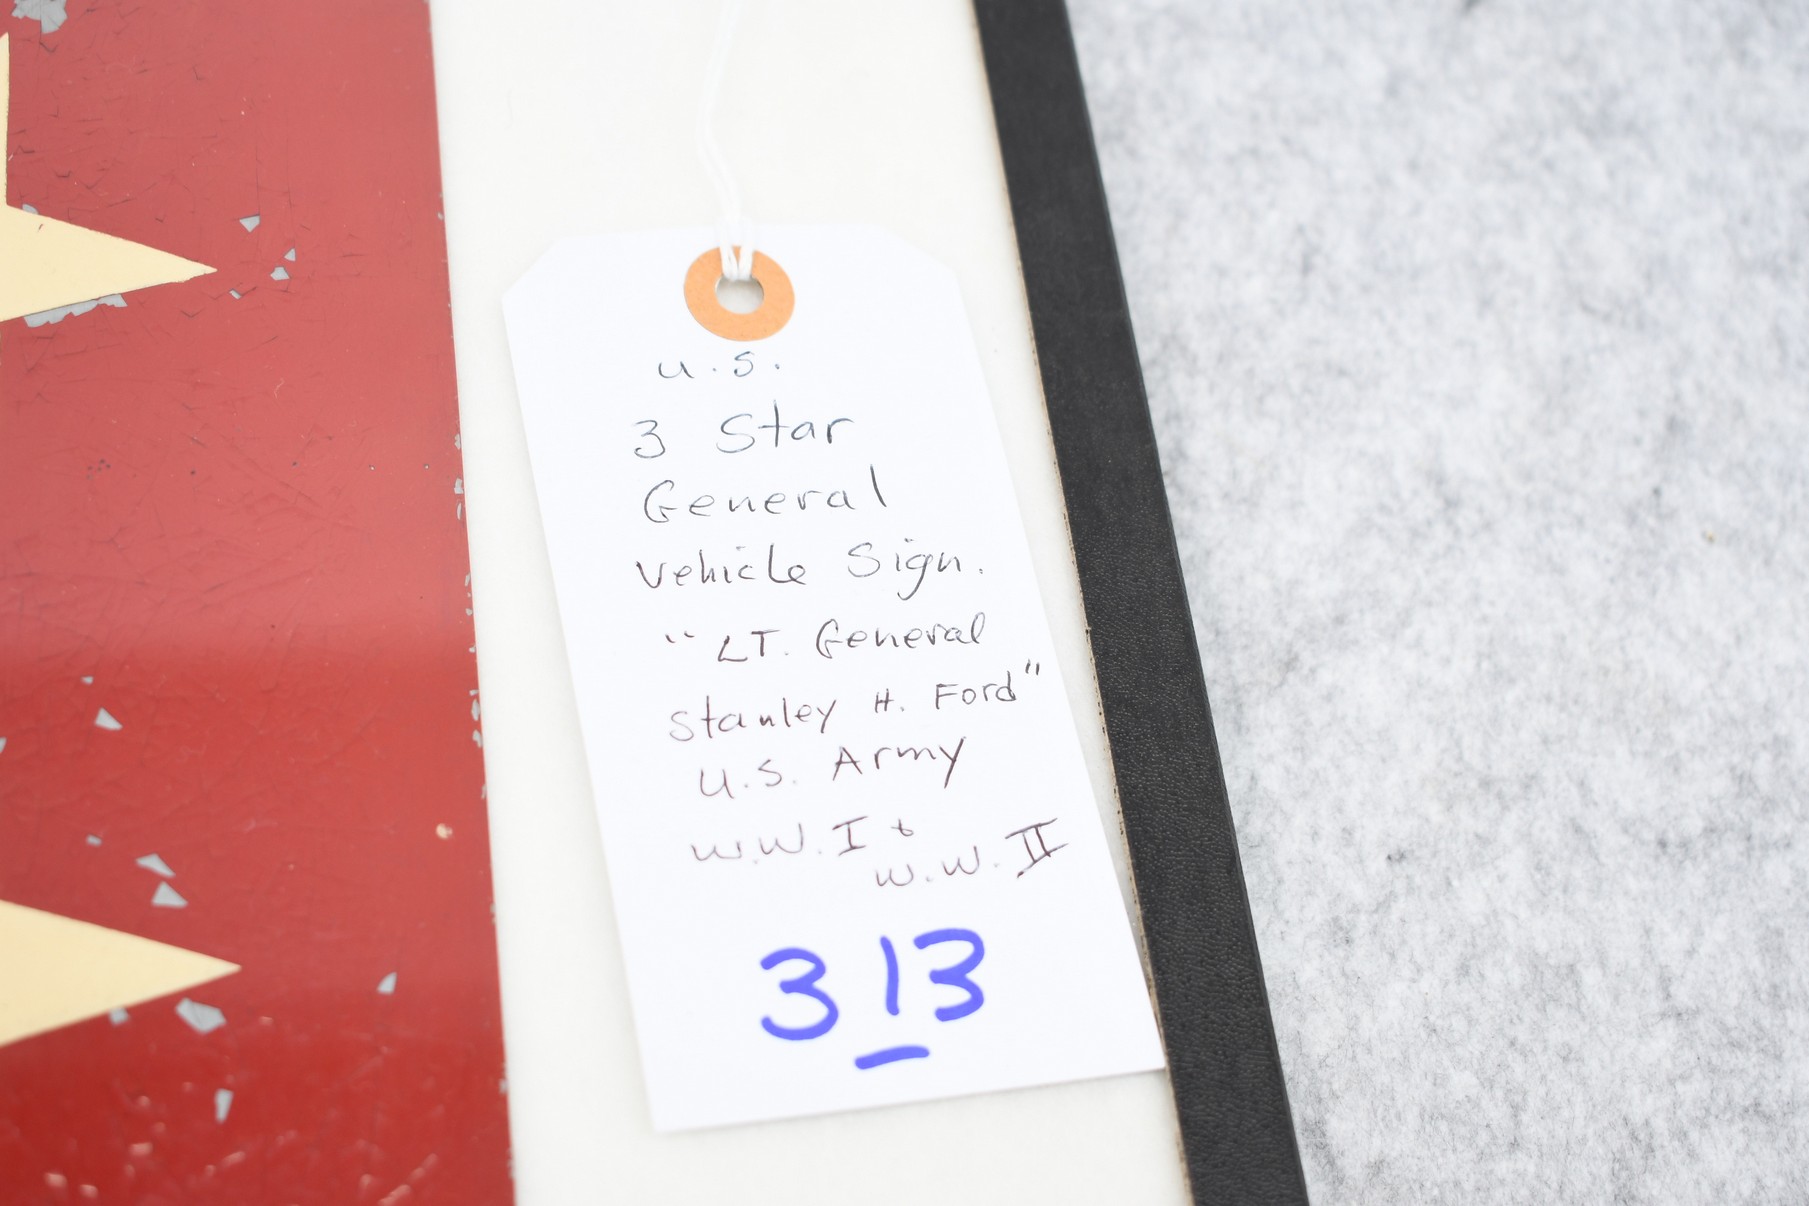 U.S.
3 Star
General
Vehicle Sign.
"LT. General
Stanley H. Ford"
U.S. Army
W.W. I &
W.W. II
313